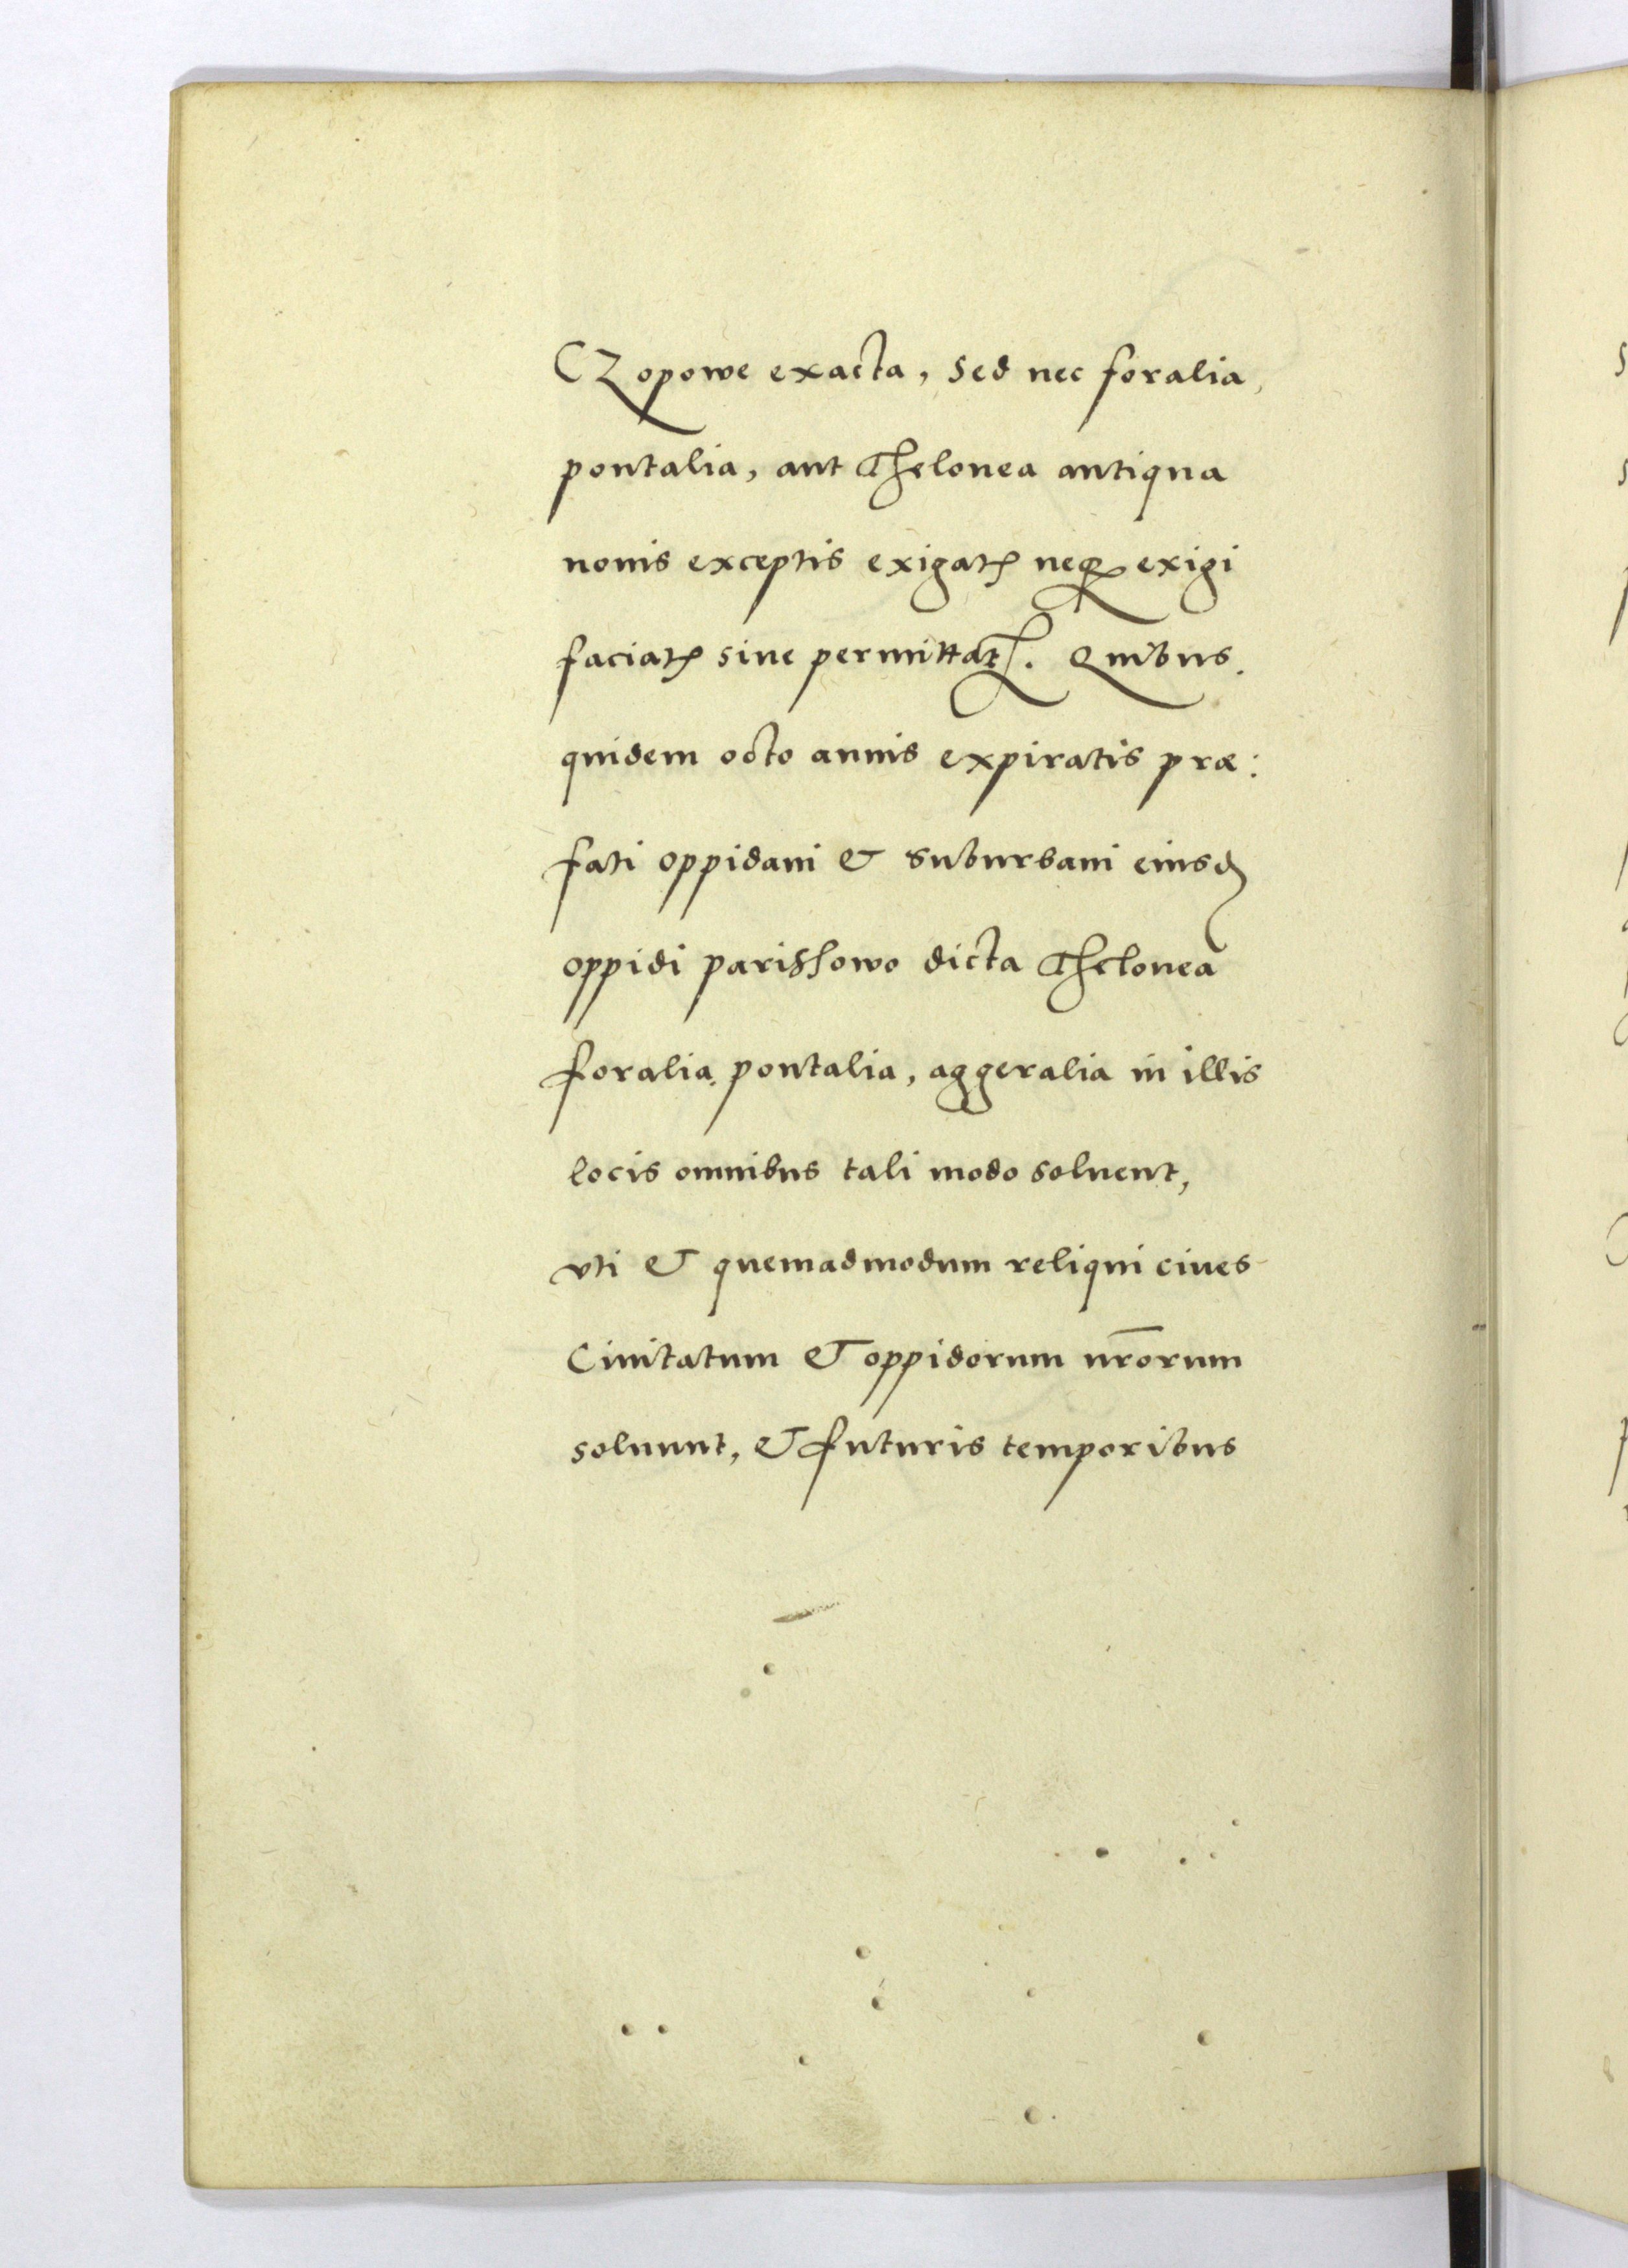 CZopowe exacta, sed nec foralia,
pontalia, aut Thelonea antiqua
nouis exceptis exigatꝭ neqꝫ exigi
faciatꝭ siue permittatꝭ. Quibus.
quidem octo annis expiratis præ:
fati oppidani & suburbani eiusd
oppidi parissowo dicta Thelonea
foralia, pontalia, aggeralia in illis
locis omnibus tali modo soluent,
vti & quemadmodum reliqui ciues
Ciuitatum & oppidorum nr̄orum
soluunt, & futuris temporibus